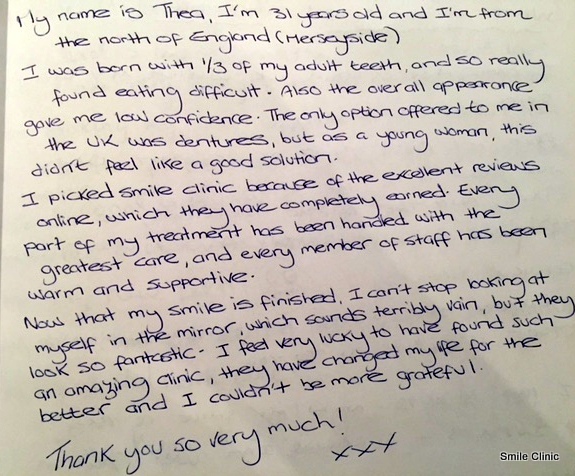 My name is Thea, I'm 31 years old and I'm from
the north of England (Merseyside)
I was born with 1/3 of my adult teeth, and so really
found eating difficult. Also the overall appearance
gave me low confidence. The only option offered to me in
the UK was dentures, but as a young woman, this
didn't feel like a good solution.
I picked smile clinic because of the excellent reviews
online, which they have completely earned. Every
part of my treatment has been handed with the
greatest care, and every member of staff has been
warm and supportive.
Now that my smile is finished, I can't stop looking at
myself in the mirror, which sounds terribly vain, but they
look so fantastic. I feel very lucky to have found such
an amazing clinic, they have changed my life for the
better and I couldn't be more grateful.
Thank you so very much!
xxx
Smile Clinic